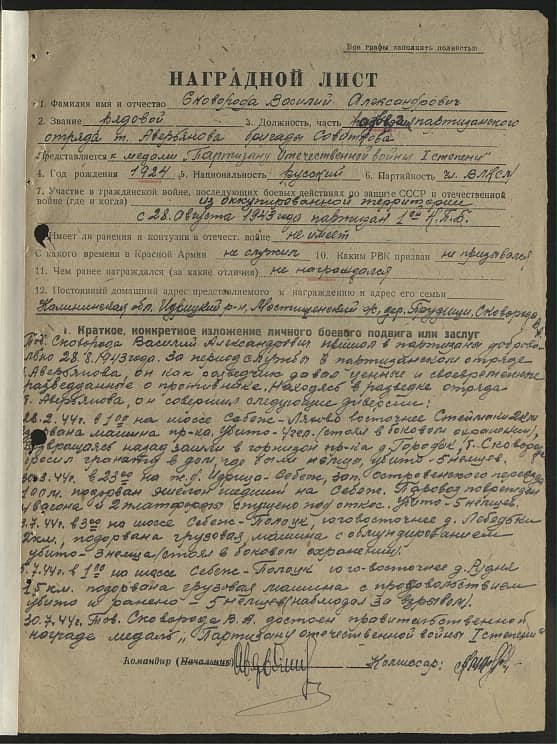 Все графы заполнять полностью
НАГРАДНОЙ ЛИСТ
1. Фамилия имя и отчество Сковорода Василий Александрович
2. Звание рядовой 3. Должность, часть партизанского
отряда т. Аверьянова бригады
Представляется к медали „Партизану Отечественной войны I степени"
4. Год рождения 1924 5. Национальность русский 6. Партийность чл. ВЛКСМ
7. Участие в гражданской войне, последующих боевых действиях по защите СССР и отечественной
войне (где и когда) из оккупированной территории
с 28. Августа 1943 года партизан 1ой К.П.Б.
Имеет ли ранения и контузии в отечест. войне не имеет
С какого времени в Красной Армии не служил 10. Каким РВК призван не призывался
11. Чем ранее награждался (за какие отличия) не награждался
12. Постоянный домашний адрес представляемого к награждению и адрес его семьи
Калининская обл. Идрицкий р-н, дер. Сковорода
I. Краткое, конкретное изложение личного боевого подвига или заслуг
Тов. Сковорода Василий Александрович пришел в партизаны доброво-
льно 28.8.1943 года. За период службы в партизанском отряде
Аверьянова, он как разведчик давал ценные и своевременные
разведданные о противнике. Находясь в разведке отряда
Аверьянова, он совершил следующие диверсии:
28.2.44г. в 1 00 на шоссе Себеж- восточнее
машина пр-ка, убито - (стоял в боковом охранении),
возвращаясь назад зашли в гарнизон пр-ка д. Городок, т. Сковорода
бросил гранату в дом, где немцы, убито - 5 немцев.
.3.44г. в 23 00 на ж.д. Идрица-Себеж, зап.
100 м. подорван эшелон шедший на Себеж. Паровоз поврежден
вагона и 2 платформы спущено под откос. Убито - 5 немцев.
.7.44г. в 3 00 на шоссе Себеж-Полоцк, юговосточнее д.
2 км., подорвана грузовая машина с обмундированием
убито - 3 немца (стоял в боковом охранении).
.7.44г. в 1 00 на шоссе Себеж-Полоцк юго-восточнее д. Рудня
1,5 км. подорвана грузовая машина с продовольствием
убито и ранено - 5 немцев (наблюдал за взрывом).
30.7.44г. Тов. Сковорода В.А. достоен правительственной
награде медаль „Партизану отечественной войны I степени"
Командир (Начальник) Комиссар: